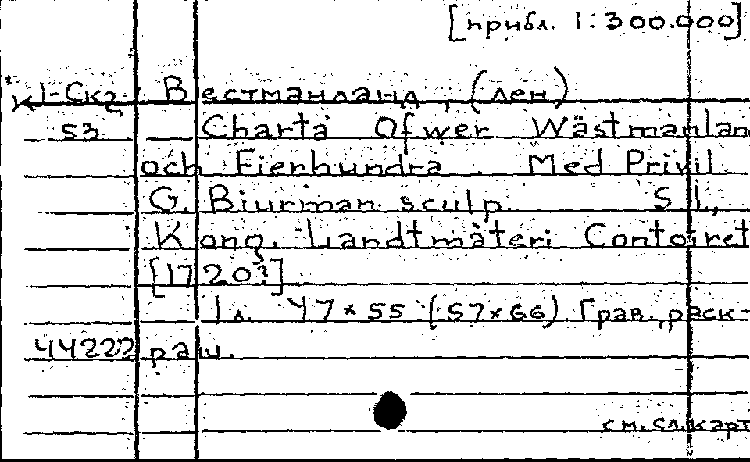 [прибл. 1:300.000]
К1-Ск2 Вестманланд, (лен)
53 Charta Öfwer Wästmanlan
och Fierhundra Med Privil.
G. Biurman sculp. S.l.,
Kong. Landtmäteri Contoiret
[1720?]
1 л. 47×55 (57×66) Грав., раск-
44222 раш.
см. сл. карт